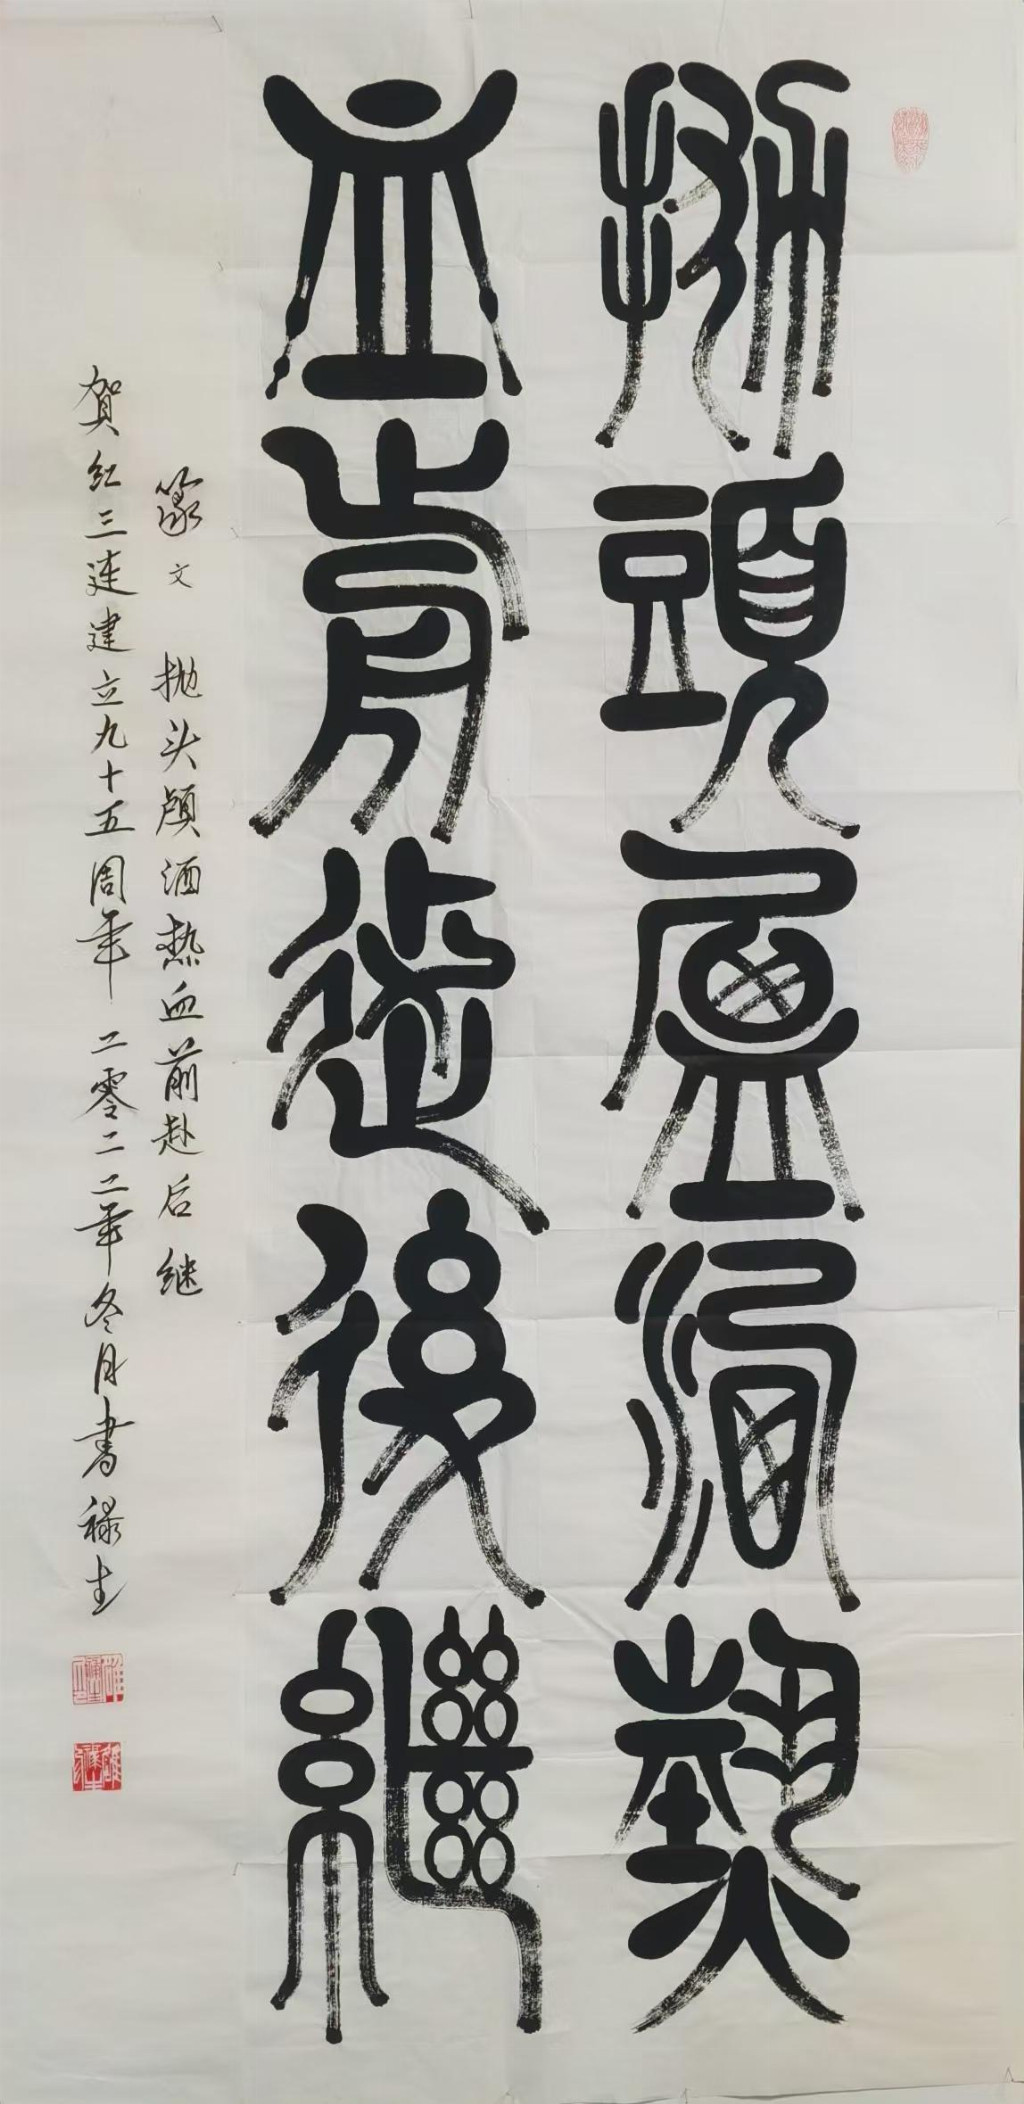 抛頭顱洒熱
血前赴後繼
篆文 抛头颅洒热血前赴后继
贺红三连建立九十五周年 二零二二年冬月书 禄生